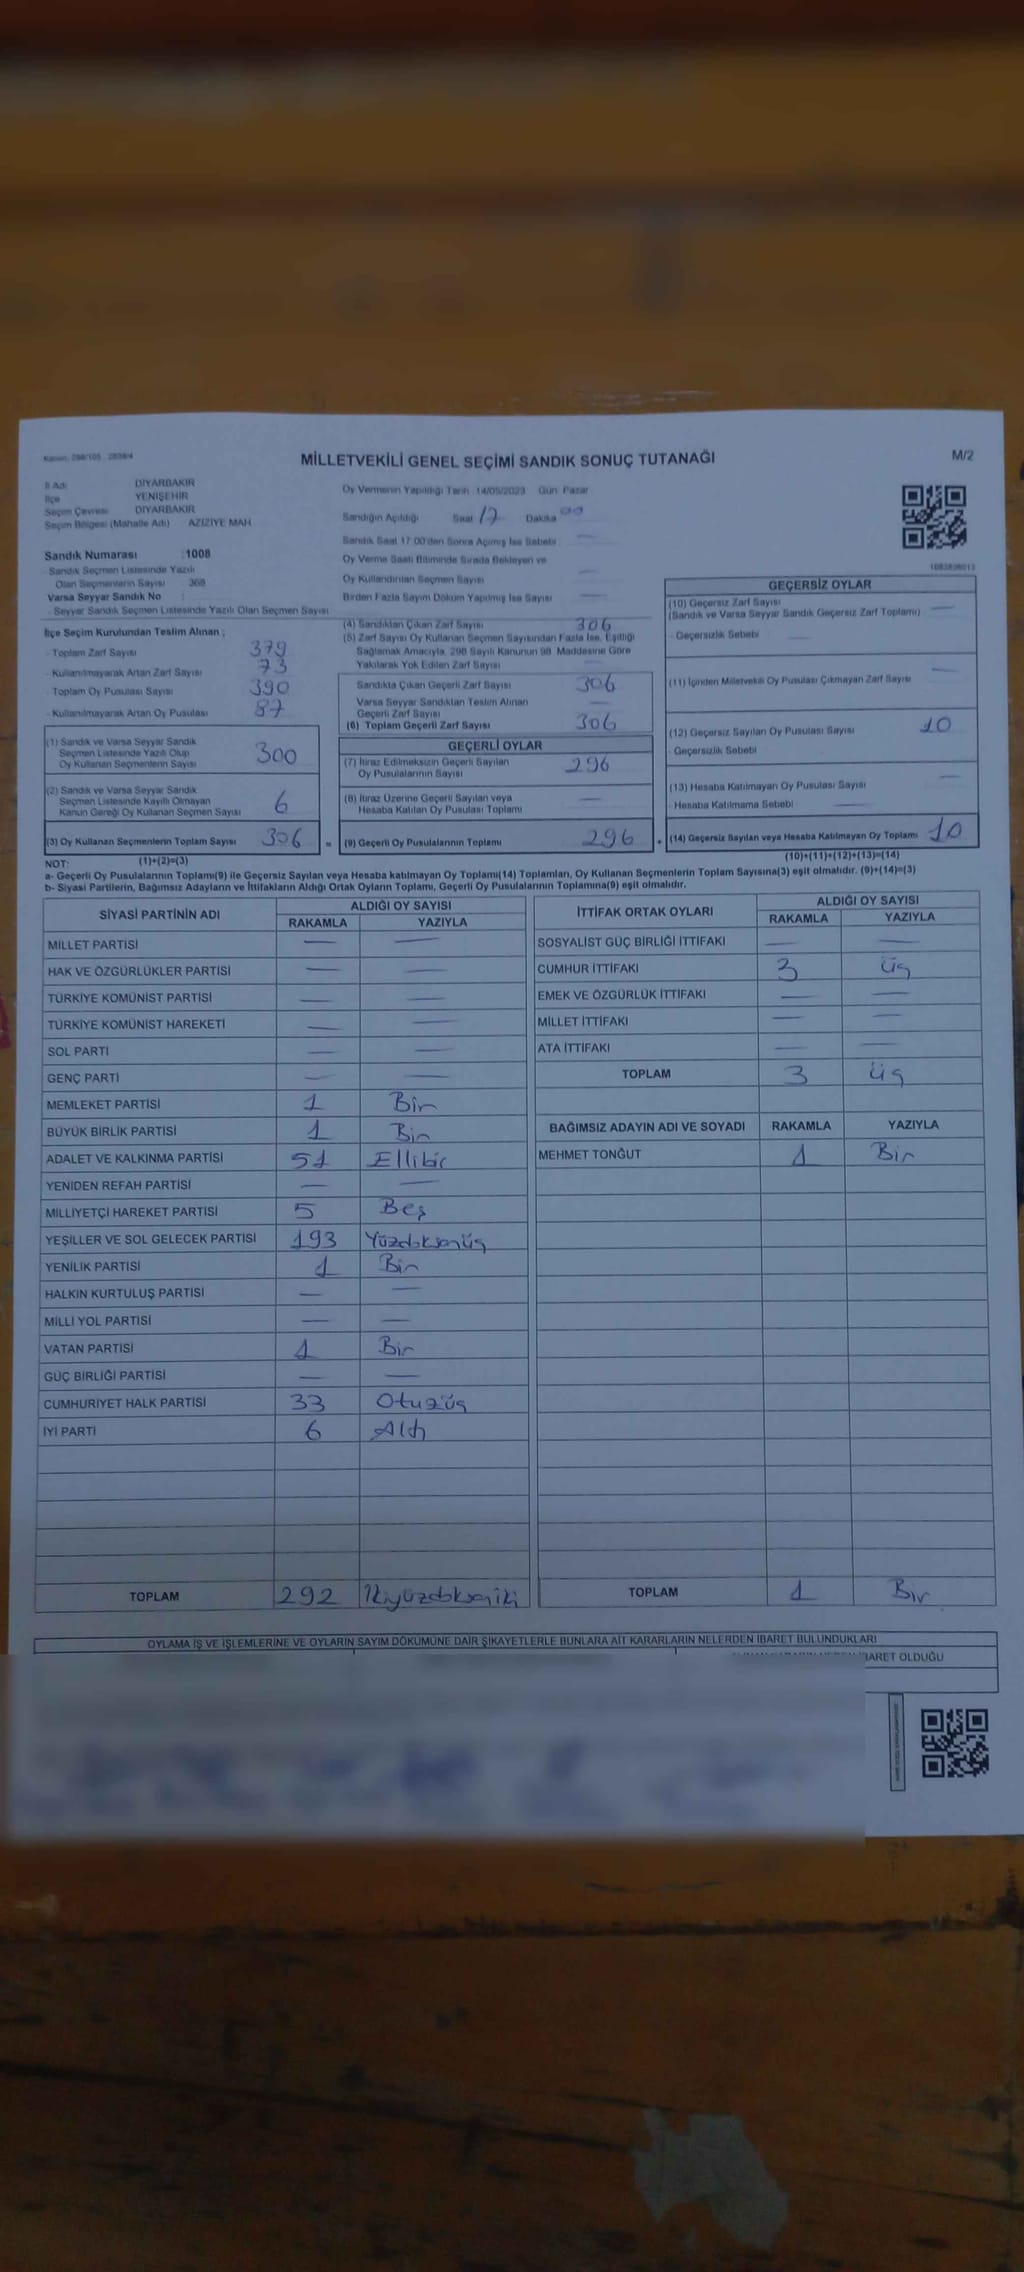 Kanun: 298/105 , 2839/4
MİLLETVEKİLİ GENEL SEÇİMİ SANDIK SONUÇ TUTANAĞI
M/2
İl Adı DİYARBAKIR
İlçe YENİŞEHİR
Seçim Çevresi DİYARBAKIR
Seçim Bölgesi (Mahalle Adı) AZİZİYE MAH
Sandık Numarası :1008
Sandık Seçmen Listesinde Yazılı
Olan Seçmenlerin Sayısı 368
Varsa Seyyar Sandık No :
- Seyyar Sandık Seçmen Listesinde Yazılı Olan Seçmen Sayısı
Oy Vermenin Yapıldığı Tarih :14/05/2023 Gün: Pazar
Sandığın Açıldığı Saat 17 Dakika 00
Sandık Saat 17:00'den Sonra Açılmış İse Sebebi —
Oy Verme Saati Bitiminde Sırada Bekleyen ve
Oy Kullandırılan Seçmen Sayısı —
Birden Fazla Sayım Döküm Yapılmış İse Sayısı —
İlçe Seçim Kurulundan Teslim Alınan ;
- Toplam Zarf Sayısı 379
- Kullanılmayarak Artan Zarf Sayısı 73
- Toplam Oy Pusulası Sayısı 390
- Kullanılmayarak Artan Oy Pusulası 87
(1) Sandık ve Varsa Seyyar Sandık
Seçmen Listesinde Yazılı Olup
Oy Kullanan Seçmenlerin Sayısı 300
(2) Sandık ve Varsa Seyyar Sandık
Seçmen Listesinde Kayıtlı Olmayan
Kanun Gereği Oy Kullanan Seçmen Sayısı 6
(3) Oy Kullanan Seçmenlerin Toplam Sayısı 306
(4) Sandıktan Çıkan Zarf Sayısı 306
(5) Zarf Sayısı Oy Kullanan Seçmen Sayısından Fazla İse, Eşitliği
Sağlamak Amacıyla, 298 Sayılı Kanunun 98. Maddesine Göre
Yakılarak Yok Edilen Zarf Sayısı —
Sandıkta Çıkan Geçerli Zarf Sayısı 306
Varsa Seyyar Sandıktan Teslim Alınan
Geçerli Zarf Sayısı —
(6) Toplam Geçerli Zarf Sayısı 306
GEÇERLİ OYLAR
(7) İtiraz Edilmeksizin Geçerli Sayılan
Oy Pusulalarının Sayısı 296
(8) İtiraz Üzerine Geçerli Sayılan veya
Hesaba Katılan Oy Pusulası Toplamı —
= (9) Geçerli Oy Pusulalarının Toplamı 296
GEÇERSİZ OYLAR
(10) Geçersiz Zarf Sayısı
(Sandık ve Varsa Seyyar Sandık Geçersiz Zarf Toplamı) —
- Geçersizlik Sebebi —
(11) İçinden Milletvekili Oy Pusulası Çıkmayan Zarf Sayısı —
(12) Geçersiz Sayılan Oy Pusulası Sayısı 10
- Geçersizlik Sebebi
(13) Hesaba Katılmayan Oy Pusulası Sayısı —
- Hesaba Katılmama Sebebi —
+ (14) Geçersiz Sayılan veya Hesaba Katılmayan Oy Toplamı 10
NOT: (1)+(2)=(3) (10)+(11)+(12)+(13)=(14)
a- Geçerli Oy Pusulalarının Toplamı(9) ile Geçersiz Sayılan veya Hesaba katılmayan Oy Toplamı(14) Toplamları, Oy Kullanan Seçmenlerin Toplam Sayısına(3) eşit olmalıdır. (9)+(14)=(3)
b- Siyasi Partilerin, Bağımsız Adayların ve İttifakların Aldığı Ortak Oyların Toplamı, Geçerli Oy Pusulalarının Toplamına(9) eşit olmalıdır.
SİYASİ PARTİNİN ADI ALDIĞI OY SAYISI
RAKAMLA YAZIYLA
MİLLET PARTİSİ — —
HAK VE ÖZGÜRLÜKLER PARTİSİ — —
TÜRKİYE KOMÜNİST PARTİSİ — —
TÜRKİYE KOMÜNİST HAREKETİ — —
SOL PARTİ — —
GENÇ PARTİ — —
MEMLEKET PARTİSİ 1 Bir
BÜYÜK BİRLİK PARTİSİ 1 Bir
ADALET VE KALKINMA PARTİSİ 51 Ellibir
YENİDEN REFAH PARTİSİ — —
MİLLİYETÇİ HAREKET PARTİSİ 5 Beş
YEŞİLLER VE SOL GELECEK PARTİSİ 193 Yüzdoksanüç
YENİLİK PARTİSİ 1 Bir
HALKIN KURTULUŞ PARTİSİ — —
MİLLİ YOL PARTİSİ — —
VATAN PARTİSİ 1 Bir
GÜÇ BİRLİĞİ PARTİSİ — —
CUMHURİYET HALK PARTİSİ 33 Otuzüç
İYİ PARTİ 6 Altı
TOPLAM 292 İkiyüzdoksaniki
İTTİFAK ORTAK OYLARI ALDIĞI OY SAYISI
RAKAMLA YAZIYLA
SOSYALİST GÜÇ BİRLİĞİ İTTİFAKI — —
CUMHUR İTTİFAKI 3 Üç
EMEK VE ÖZGÜRLÜK İTTİFAKI — —
MİLLET İTTİFAKI — —
ATA İTTİFAKI — —
TOPLAM 3 Üç
BAĞIMSIZ ADAYIN ADI VE SOYADI RAKAMLA YAZIYLA
MEHMET TONĞUT 1 Bir
TOPLAM 1 Bir
OYLAMA İŞ VE İŞLEMLERİNE VE OYLARIN SAYIM DÖKÜMÜNE DAİR ŞİKAYETLERLE BUNLARA AİT KARARLARIN NELERDEN İBARET BULUNDUKLARI
İBARET OLDUĞU